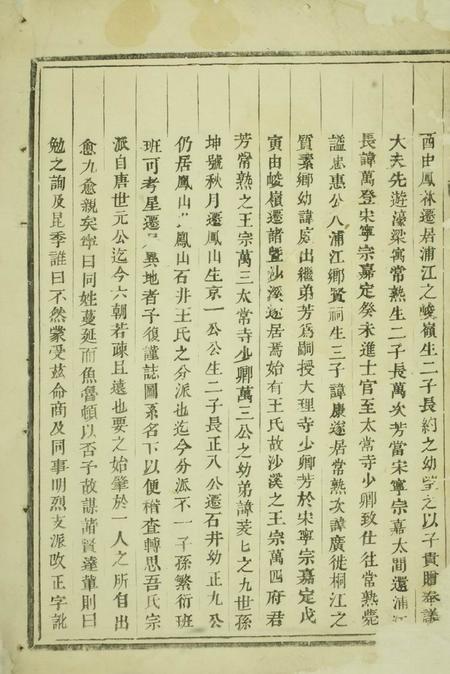 酉由鳳林遷居浦江之峻嶺生二子長約之幼望之以子貴贈奉議
大夫先遊濠梁寓常熟生二子長萬次芳當宋寧宗嘉太間還浦江
長諱萬登宋寧宗嘉定癸未進士官至太常寺少卿致仕往常熟薨
諡忠惠公入浦江鄉賢祠生三子諱康遂居常熟次諱廣徙桐江之
質素鄉幼諱處出繼弟芳爲嗣授大理寺少卿芳於宋寧宗嘉定戊
寅由峻嶺遷諸曁沙溪遂居焉始有王氏故沙溪之王宗萬四府君
芳常熟之王宗萬三太常寺少卿萬三公之幼弟諱芰七之九世孫
坤號秋月遷鳳山生京一公公生二子長正八公遷石井幼正九公
仍居鳳山鳳山石井王氏之分派也迄今分派不一子孫繁衍班
班可考星遷異地者子復謹誌圖系名下以便稽查轉思吾氏宗
派自唐世元公迄今六朝若疎且遠也要之始肇於一人之所自出
愈九愈親矣寧曰同姓蔓延而魚魯頓以否子故謀諸賢達輩則曰
勉之詢及昆季誰曰不然蒙受茲命商及同事明烈支派改正字訛